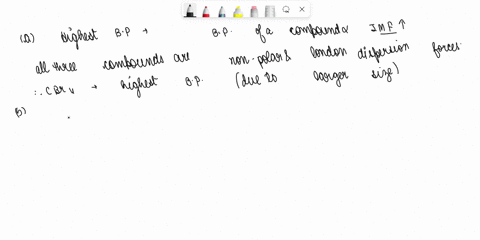 (a) Highest B.P → B.P. of a compound ∝ IMF ↑
all three compounds are non-polar & london dispersion forces.
∴ CBr₄ → highest B.P. (due to larger size)
B)